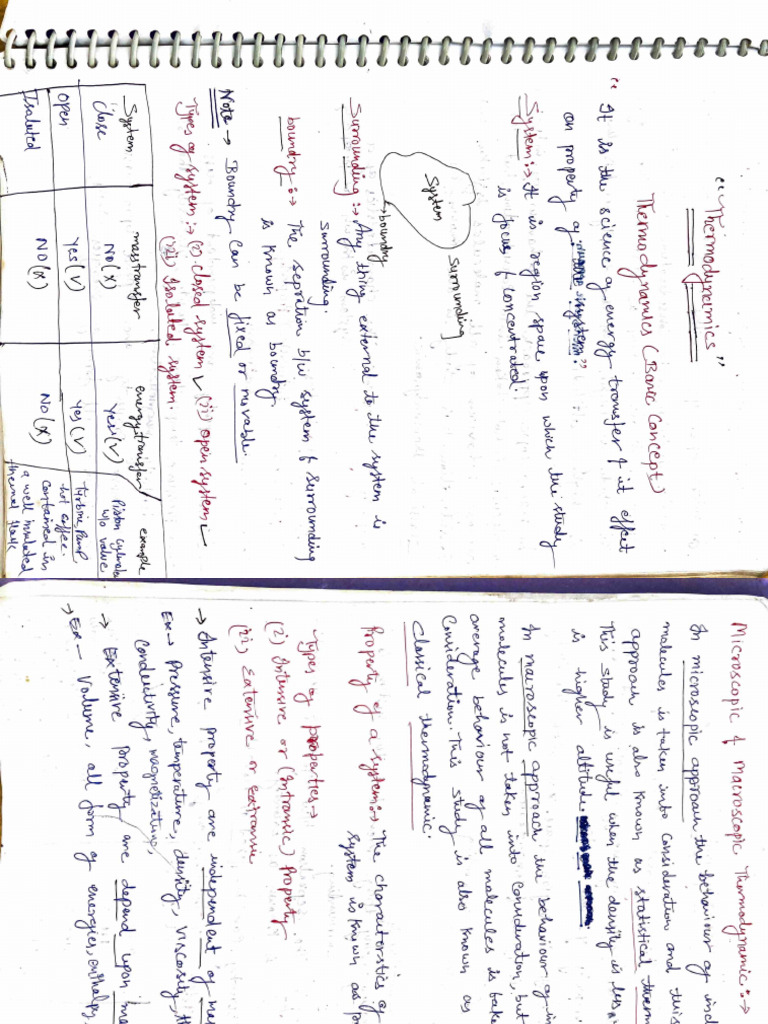 "Thermodynamics"
Thermodynamics (Basic Concept)
" It is the science of energy transfer & it effect
on property of system."
System :→ It is region space upon which the study
is focus & concentrated.
System
surrounding
boundry
Surrounding :→ Any thing external to the system is
surrounding.
boundry :→ The sepration b/w system & surrounding
is known as boundry.
Note → Boundry can be fixed or movable.
Types of system :→ (i) closed system (ii) open system
(iii) Isolated system.
System mass transfer energy transfer example
Close NO(X) Yes(√) Piston cylinder w/o valve
Open Yes(√) Yes(√) Turbine, Pump
Isaluted NO(X) NO(X) hot coffee contained in a well insulated thermal flask
Microscopic & Macroscopic Thermodynamic :→
In microscopic approach the behaviour of
molecules is taken into consideration and this
approach is also known as statistical
This study is useful when the density is less
is higher altitude
In macroscopic approach the behaviour of
molecules is not taken into consideration, but
average behaviour of all molecules is
consideration. This study is also known as
Classical thermodynamic.
Property of a system :→ The characteristics of
system is known as
Types of properties →
(i) Intensive or (Intransic) Property
(ii) Extensive or Extransic
→ Intensive property are independent of
Ex → Pressure, temperature, density, viscosity,
Conductivity, magnetization,
→ Extensive property are depend upon
→ Ex - Volume, all form of energies, enthalpy,